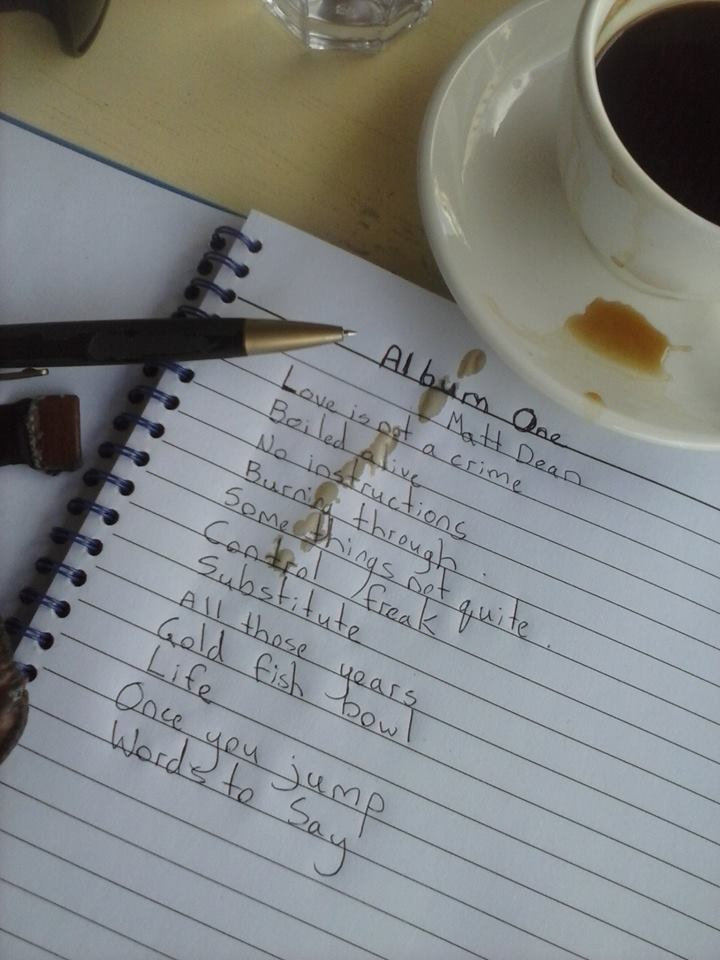 Album One
Matt Dean
Love is not a crime
Boiled alive
No instructions
Burning through.
Some things not quite.
Control freak
Substitute
All those years
Gold fish bowl
Life
Once you jump
Words to say